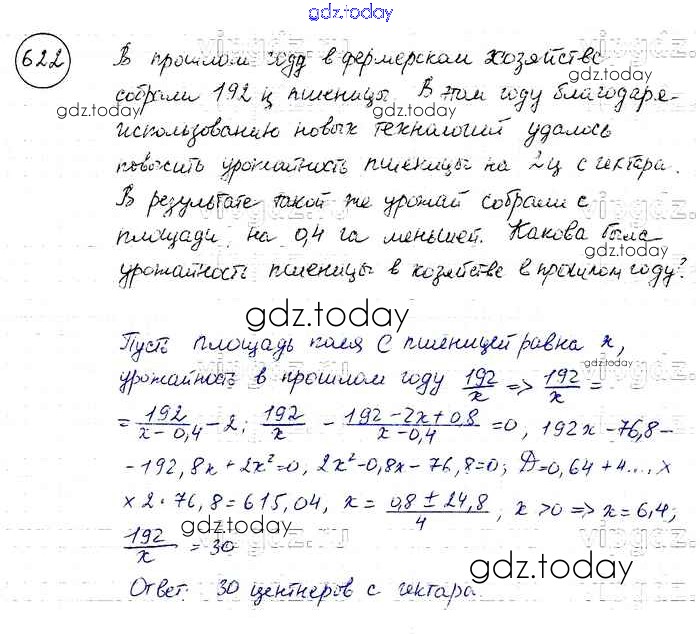 gdz.today
622
В прошлом году в фермерском хозяйстве
собрали 192 ц пшеницы. В этом году благодаря
использованию новых технологий удалось
повысить урожайность пшеницы на 2ц с гектара.
В результате такой же урожай собрали с
площади, на 0,4 га меньшей. Какова была
урожайность пшеницы в хозяйстве в прошлом году?
gdz.today
Пусть площадь поля с пшеницей равна x,
урожайность в прошлом году 192/x => 192/x =
= 192/(x-0,4) - 2; 192/x - (192-2x+0,8)/(x-0,4) = 0, 192x - 76,8 -
- 192,8x + 2x² = 0, 2x² - 0,8x - 76,8 = 0; D = 0,64 + 4 ... x
x 2 · 76,8 = 615,04, x = (0,8 ± 24,8)/4, x > 0 => x = 6,4;
192/x = 30
Ответ: 30 центнеров с гектара.
gdz.today